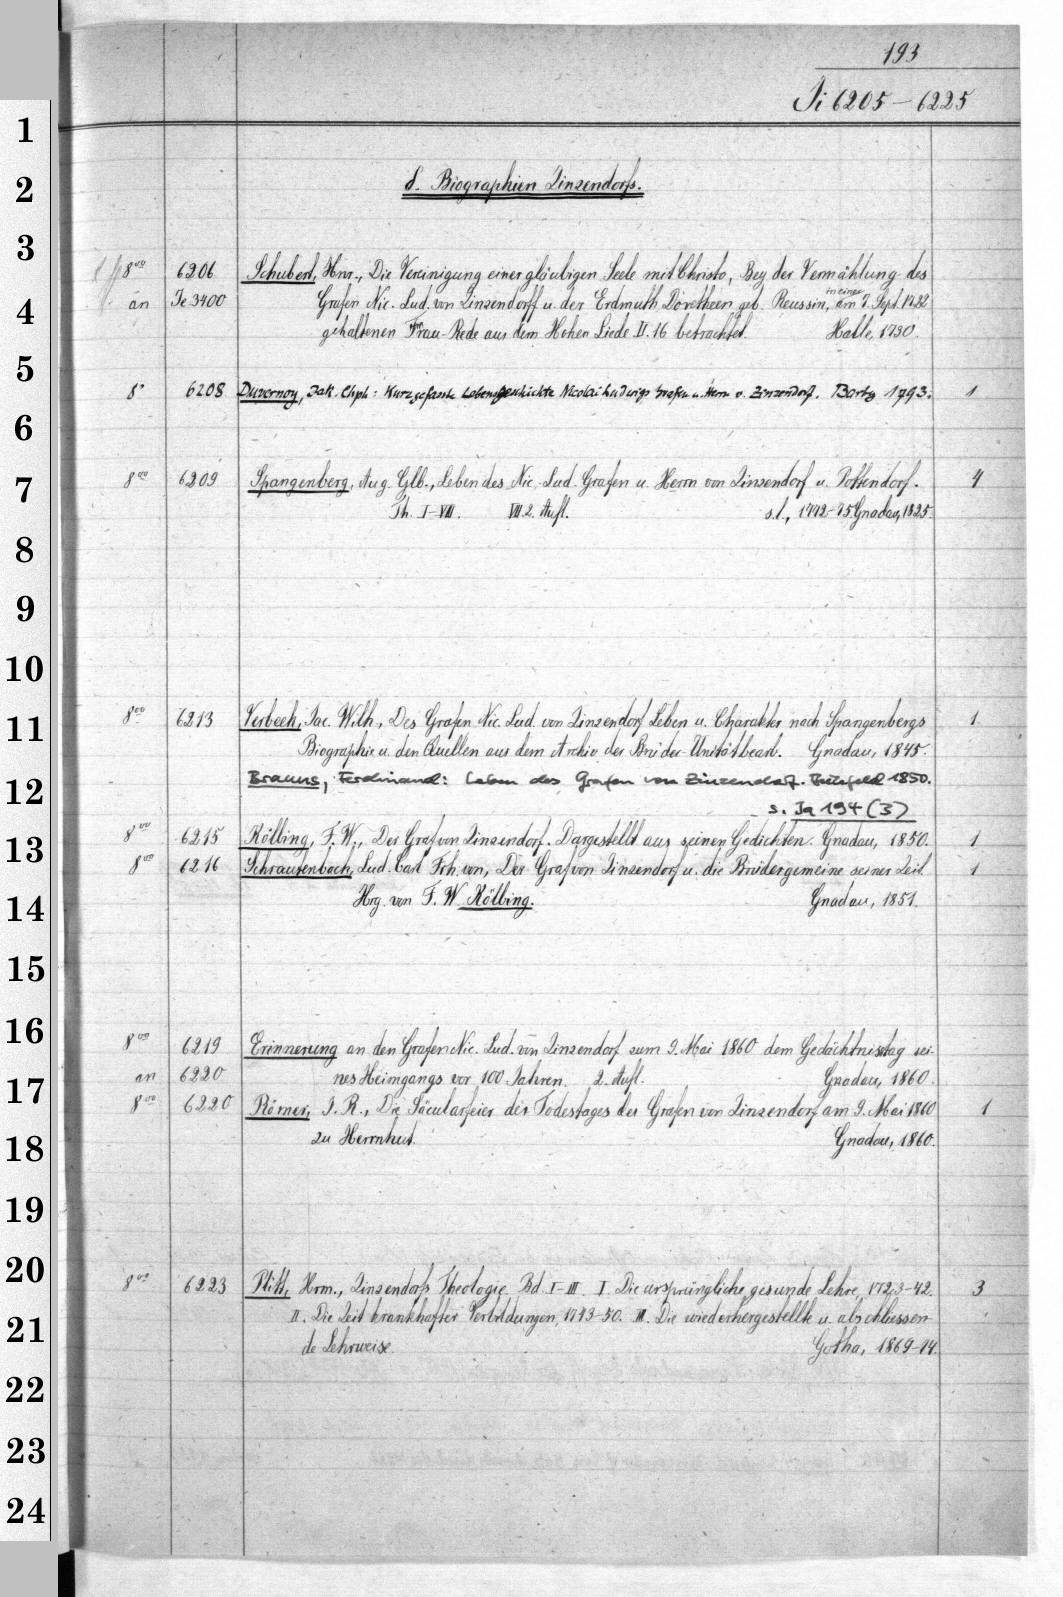 193
Ji 6205 – 6225
δ. Biographien Zinzendorfs.
8vo 6206 Schubert, Hnr., Die Vereinigung einer gläubigen Seele mit Christo, Bey der Vermählung des
an Je 3400 Grafen Nic. Lud. von Zinzendorff u. der Erdmuth Dorotheen geb. Reussin, in einer am 7. Sept. 1732
gehaltenen Trau-Rede aus dem Hohen Liede II. 16 betrachtet. Halle, 1730.
8° 6208 Duvernoy, Jak. Chph.: Kurzgefasste Lebensgeschichte Nicolai Ludwigs Grafen u. Herrn v. Zinzendorf. Barby 1793. 1
8vo 6209 Spangenberg, Aug. Glb., Leben des Nic. Lud. Grafen u. Herrn von Zinzendorf u. Pottendorf. 4
Th. I–VIII. VIII 2. Aufl. s.l., 1772-75 Gnadau, 1825.
8vo 6213 Verbeek, Jac. Wilh., Des Grafen Nic. Lud. von Zinzendorf Leben u. Charakter nach Spangenbergs 1
Biographie u. den Quellen aus dem Archiv der Brüder-Unität bearb. Gnadau, 1845.
Brauns, Ferdinand: Leben des Grafen von Zinzendorf. Bielefeld 1850.
s. Ja 194 (3)
8vo 6215 Kölbing, F. W., Der Graf von Zinzendorf. Dargestellt aus seinen Gedichten. Gnadau, 1850. 1
8vo 6216 Schrautenbach, Lud. Carl Frh. von, Der Graf von Zinzendorf u. die Brüdergemeine seiner Zeit. 1
Hrg. von F. W. Kölbing. Gnadau, 1851.
8vo 6219 Erinnerung an den Grafen Nic. Lud. von Zinzendorf zum 9. Mai 1860 dem Gedächtnistag sei-
an 6220 nes Heimgangs vor 100 Jahren. 2. Aufl. Gnadau, 1860.
8vo 6220 Römer, J. R., Die Säcularfeier des Todestages des Grafen von Zinzendorf am 9. Mai 1860 1
zu Herrnhut. Gnadau, 1860.
8vo 6223 Plitt, Hrm., Zinzendorfs Theologie. Bd. I–III. I. Die ursprüngliche gesunde Lehre, 1723–42. 3
II. Die Zeit krankhafter Verbildungen, 1743–50. III. Die wiederhergestellte u. abschliessen-
de Lehrweise. Gotha, 1869–74.
1
2
3
4
5
6
7
8
9
10
11
12
13
14
15
16
17
18
19
20
21
22
23
24